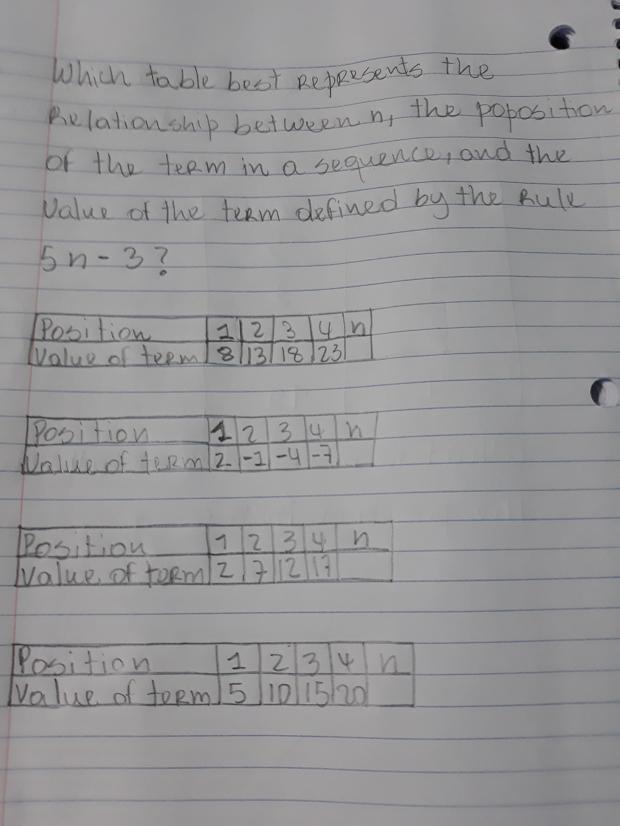 Which table best represents the
Relationship between n, the poposition
of the term in a sequence, and the
Value of the term defined by the Rule
5n - 3?
Position 1 2 3 4 n
Value of term 8 13 18 23
Position 1 2 3 4 n
Value of term 2 -1 -4 -7
Position 1 2 3 4 n
Value of term 2 7 12 17
Position 1 2 3 4 n
Value of term 5 10 15 20